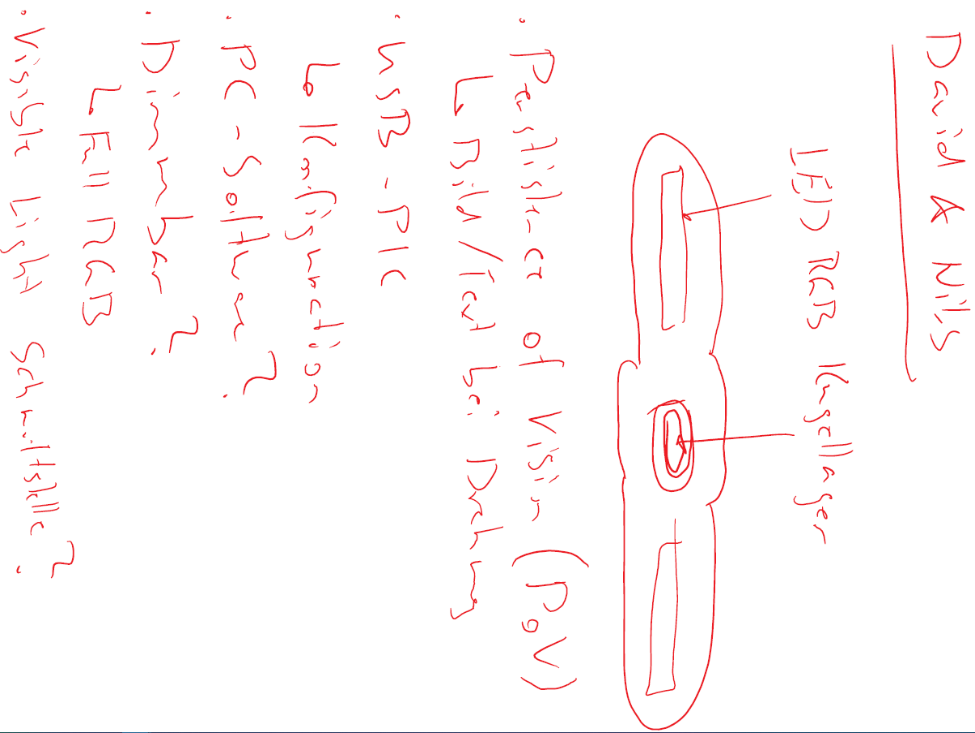 David & Nils
LED RGB Kugellager
· Persistence of Vision (PoV)
↳ Bild/Text bei Drehung
· USB-PIC
↳ Konfiguration
· PC-Software?
· Dimmbar?
↳ Full RGB
· Visible Light Schnittstelle?